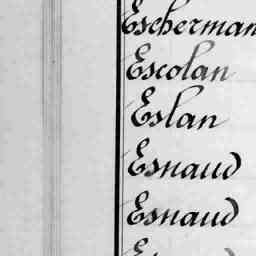 Escherman
Escolan
Eslan
Esnaud
Esnaud